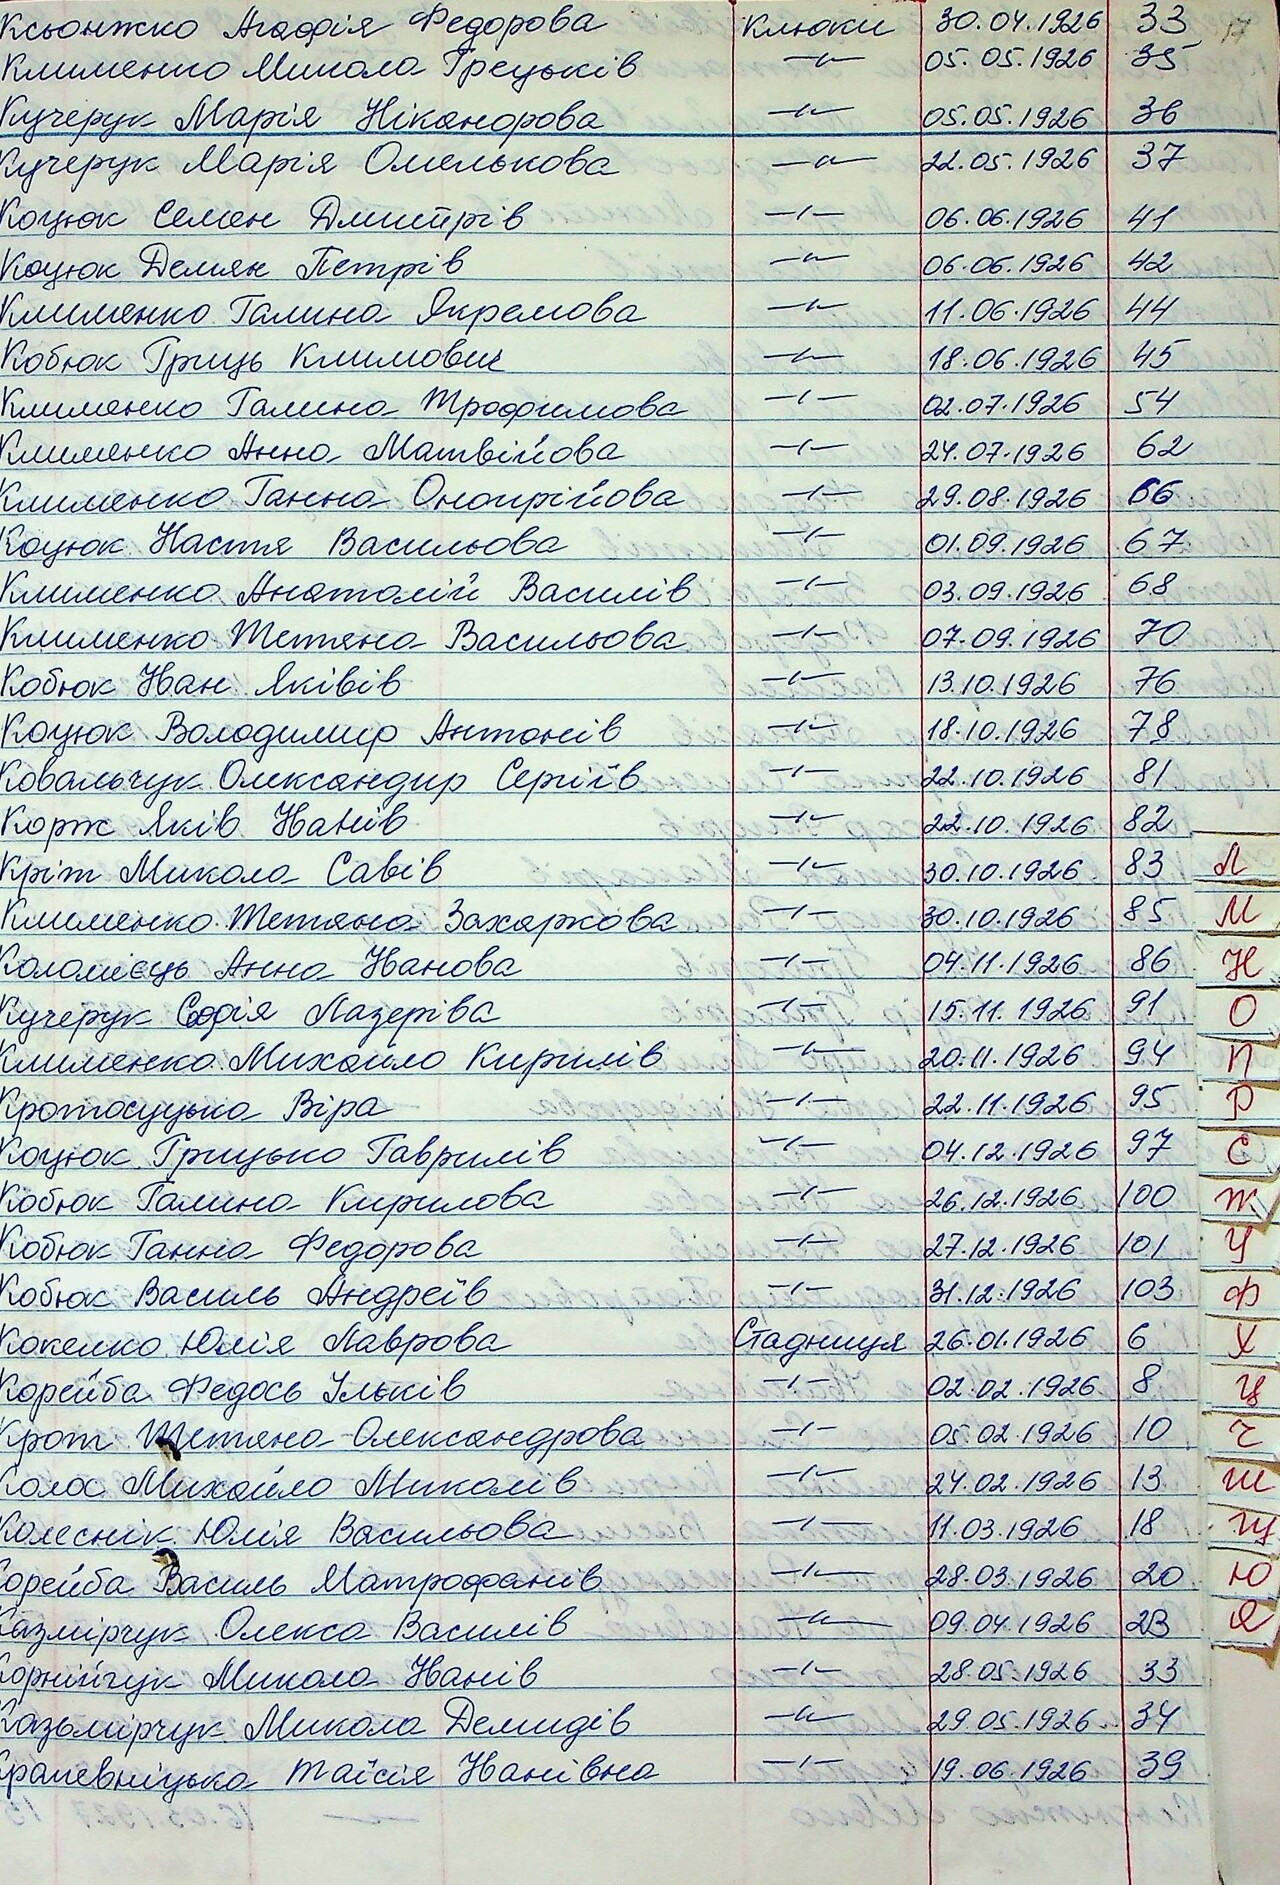 Ксьонжко Агафія Федорова Клюки 30.04.1926 33 17
Клименко Микола Грецьків —"— 05.05.1926 35
Кучерук Марія Ніканорова —"— 05.05.1926 36
Кучерук Марія Омелькова —"— 22.05.1926 37
Коцюк Семен Дмитрів —"— 06.06.1926 41
Коцюк Демян Петрів —"— 06.06.1926 42
Клименко Галина Якремова —"— 11.06.1926 44
Кобюк Гриць Климович —"— 18.06.1926 45
Клименко Галина Трофимова —"— 02.07.1926 54
Клименко Анна Матвійова —"— 24.07.1926 62
Клименко Ганна Онопрійова —"— 29.08.1926 66
Коцюк Настя Васильова —"— 01.09.1926 67
Клименко Анатолій Василів —"— 03.09.1926 68
Клименко Тетяна Васильова —"— 07.09.1926 70
Кобюк Іван Яківів —"— 13.10.1926 76
Коцюк Володимир Антонів —"— 18.10.1926 78
Ковальчук Олександир Сергіїв —"— 22.10.1926 81
Корж Яків Іванів —"— 22.10.1926 82
Кріт Микола Савів —"— 30.10.1926 83 Л
Клименко Тетяна Захаркова —"— 30.10.1926 85 М
Коломієць Анна Іванова —"— 04.11.1926 86 Н
Кучерук Софія Лазеріва —"— 15.11.1926 91 О
Клименко Михайло Кирилів —"— 20.11.1926 94 П
Кротосуцька Віра —"— 22.11.1926 95 Р
Коцюк Грицько Гаврилів —"— 04.12.1926 97 С
Кобюк Галина Кирилова —"— 26.12.1926 100 Т
Кобюк Ганна Федорова —"— 27.12.1926 101 У
Кобюк Василь Андреїв —"— 31.12.1926 103 Ф
Кокелко Юлія Лаврова Стадниця 26.01.1926 6 Х
Корейба Федось Ільків —"— 02.02.1926 8 Ц
Крот Тетяна Олександрова —"— 05.02.1926 10 Ч
Колос Михайло Миколів —"— 24.02.1926 13 Ш
Колеснік Юлія Васильова —"— 11.03.1926 18 Щ
Корейба Василь Матрофанів —"— 28.03.1926 20 Ю
Казмірчук Олекса Василів —"— 09.04.1926 23 Я
Корнійчук Микола Іванів —"— 28.05.1926 33
Казьмірчук Микола Демидів —"— 29.05.1926 34
Крапевніцька Таїсія Іванівна —"— 19.06.1926 39